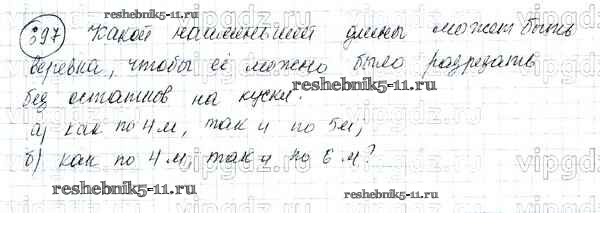 reshebnik5-11.ru
397 Какой наименьшей длины может быть
веревка, чтобы её можно было разрезать
reshebnik5-11.ru
без остатков на куски:
а) как по 4 м, так и по 5 м;
б) как по 4 м, так и по 6 м?
reshebnik5-11.ru
reshebnik5-11.ru
vipgdz.ru